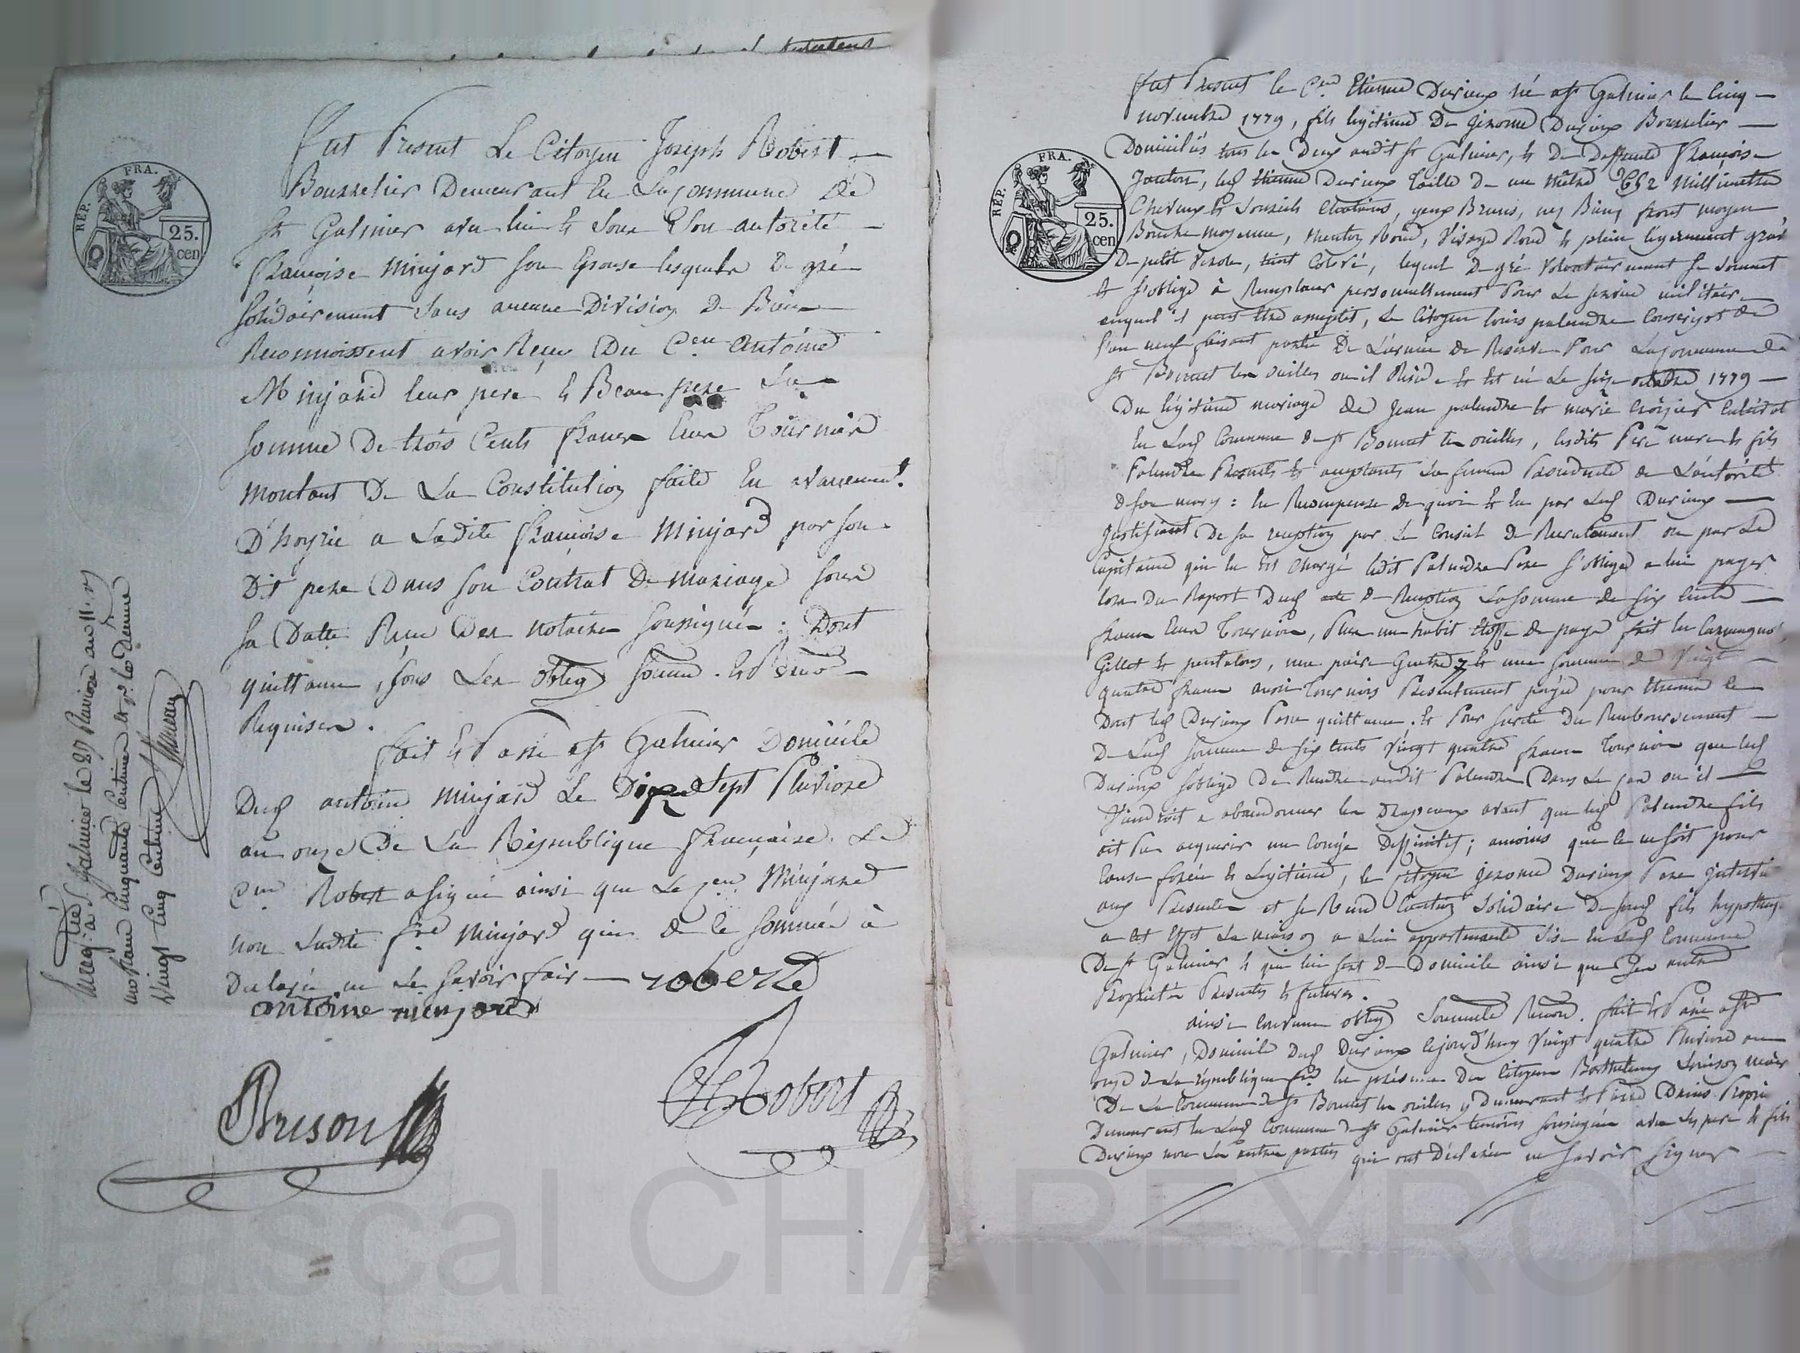 REP. FRA.
25.
cen
Fut Present Le Citoyen Joseph Robert
Bourrelier Demeurant En La Commune de
St Galmier avec lui & sous son autorité
françoise Minjard son Epouse lesquels De gré
solidairement sans aucune Division De Bien
Reconnoissent avoir Reçu Du Cen Antoine
Minjard leur pere & Beau pere La
somme De trois Cents francs livre Tournois
montant De La Constitution faite En avancement
D'hoyrie a Ladite françoise Minjard par son
Dit pere Dans son Contrat De mariage sous
sa Datte Reçu Des notaires soussigné : Dont
quittance, sous Les oblig
Requises.
fait & Passé a St Galmier Domicile
Dud antoine Minjard Le Dix Sept Pluviose
an onze De La République française Le
Cen Robert a signé ainsi que Le Cen Minjard
non Ladite fse Minjard qui de ce sommée à
Déclaré ne Le Savoir fair robert
antoine minjard
Brison
Robert
Enreg. à St Galmier le 29 Pluviose an 11
un franc Cinquante Centimes
Vingt Cinq Centimes
REP. FRA.
25.
cen
Fut Present le Cen Etienne Durieux né a St Galmier le Cinq
novembre 1779, fils legitime De Jerome Durieux Bourrelier
Domiciliés tous les Deux audit St Galmier, & De Deffunte françoise
led Etienne Durieux taille De un Mètre 652 Millimetres
Cheveux & Sourcils chatains, yeux Bruns, nez Bien front moyen
Bouche moyenne, menton Rond, Visage Rond & plein légerement gravé
De petite Verole, teint Coloré, lequel De gré Volontairement se soumet
& s'oblige à Remplacer personnellement Pour Le service militaire
auquel il peut etre assujeti, Le Citoyen Louis palandre Conscript de
l'an neuf faisant partie De L'armée de Reserve Pour La Commune De
St Bonnet les oulles ou il Réside & est né Le six octobre 1779
Du légitime mariage de Jean palandre & marie
En Lad Commune de St Bonnet les oulles, lesdits Pere mere & fils
Palandre Presents & acceptants La femme Procedante de L'autorité
de son mary : En Recompense de quoi & en par Led Durieux
Justifiant De sa reception par Le Conseil de Recrutement ou par Le
Capitaine qui en est chargé ledit Palandre Pere s'oblige a lui payer
lors Du Raport Dud acte de Reception La somme de six cents
francs livre Tournois, Plus un habit étoffe de pays fait en Carmagnole,
Gillet & pantalons, une paire Guetres & une somme de Vingt
quatre francs aussi tournois Presentement payée pour Etienne le
Dont led Durieux Pere quittance. & Pour sureté Du Remboursement
De Lad somme de six cents Vingt quatre francs Tournois que led
Durieux s'oblige De Rendre audit Palandre Dans Le cas ou il
Viendroit a abandonner les Drapeaux avant que led Palandre fils
ait Pu acquerir un Congé Deffinitif; amoins que ce ne soit pour
Cause forcée & Legitime, Le Citoyen Jerome Durieux Pere
aux Presentes et se Rend Caution Solidaire De sond fils hypotheq
a cet Effet La maison a Lui appartenante Sise en Lad Commune
De St Galmier & qui lui sert De Domicile ainsi que Ses autres
Propriétés Presentes & futures.
ainsi Convenu oblig Soumis Renon. fait & Passé a St
Galmier, Domicile Dud Durieux cejourd'huy Vingt quatre Pluviose an
onze De La République fse En présence Du Citoyen Barthelemy
De La Commune de St Bonnet les oulles y Demeurant &
Demeurant En Lad Commune de St Galmier temoins soussignés avec Les pere & fils
Durieux non Les autres parties qui ont Déclaré ne Savoir Signer
Pascal CHAREYRON